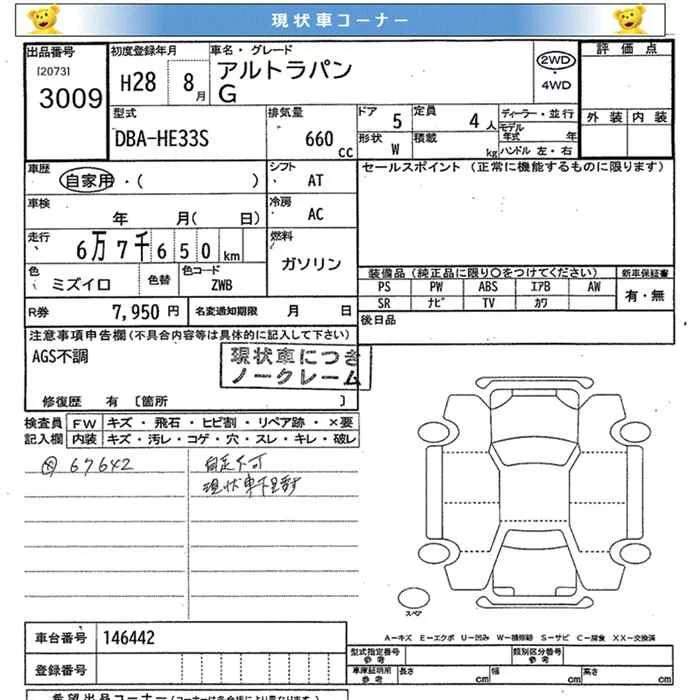 現状車コーナー
出品番号
[2073]
3009
初度登録年月
H28 8月
車名・グレード
アルトラパン
G
2WD
・
4WD
評価点
外装 内装
型式
DBA-HE33S
排気量
660 cc
ドア 5
定員 4人
形状 W
積載 kg
ディーラー・並行
モデル年式 年
ハンドル 左・右
車歴
自家用・( )
シフト AT
セールスポイント (正常に機能するものに限ります)
車検
年 月( 日)
冷房 AC
走行
6万7千650km
燃料
ガソリン
色
ミズイロ
色替
色コード
ZWB
装備品(純正品に限り○をつけてください)
新車保証書
PS PW ABS エアB AW
SR ナビ TV カワ
有・無
R券 7,950円
名変通知期限 月 日
後日品
注意事項申告欄(不具合内容等は具体的に記入して下さい)
AGS不調
現状車につき
ノークレーム
修復歴 有 [箇所 ]
検査員
記入欄
FW キズ・飛石・ヒビ割・リペア跡・×要
内装 キズ・汚レ・コゲ・穴・スレ・キレ・破レ
67642
自走不可
現状車
スペア
A-キズ E-エクボ U-凹み W-補修跡 S-サビ C-腐食 XX-交換済
車台番号 146442
型式指定番号
参考
類別区分番号
参考
登録番号
車庫証明用
参考
長さ cm
幅 cm
高さ cm
希望出品コーナー(コーナーは各会場により異なります)